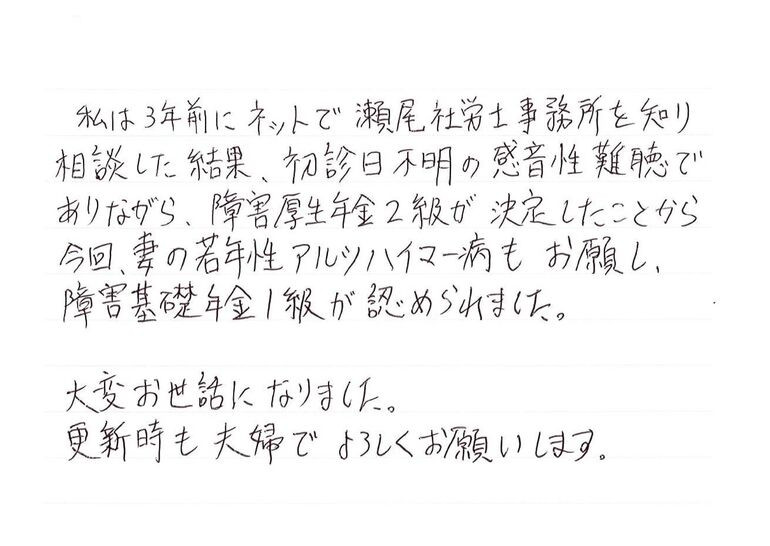 私は3年前にネットで瀬尾社労士事務所を知り
相談した結果、初診日不明の感音性難聴で
ありながら、障害厚生年金2級が決定したことから
今回、妻の若年性アルツハイマー病もお願いし、
障害基礎年金1級が認められました。
大変お世話になりました。
更新時も夫婦でよろしくお願いします。